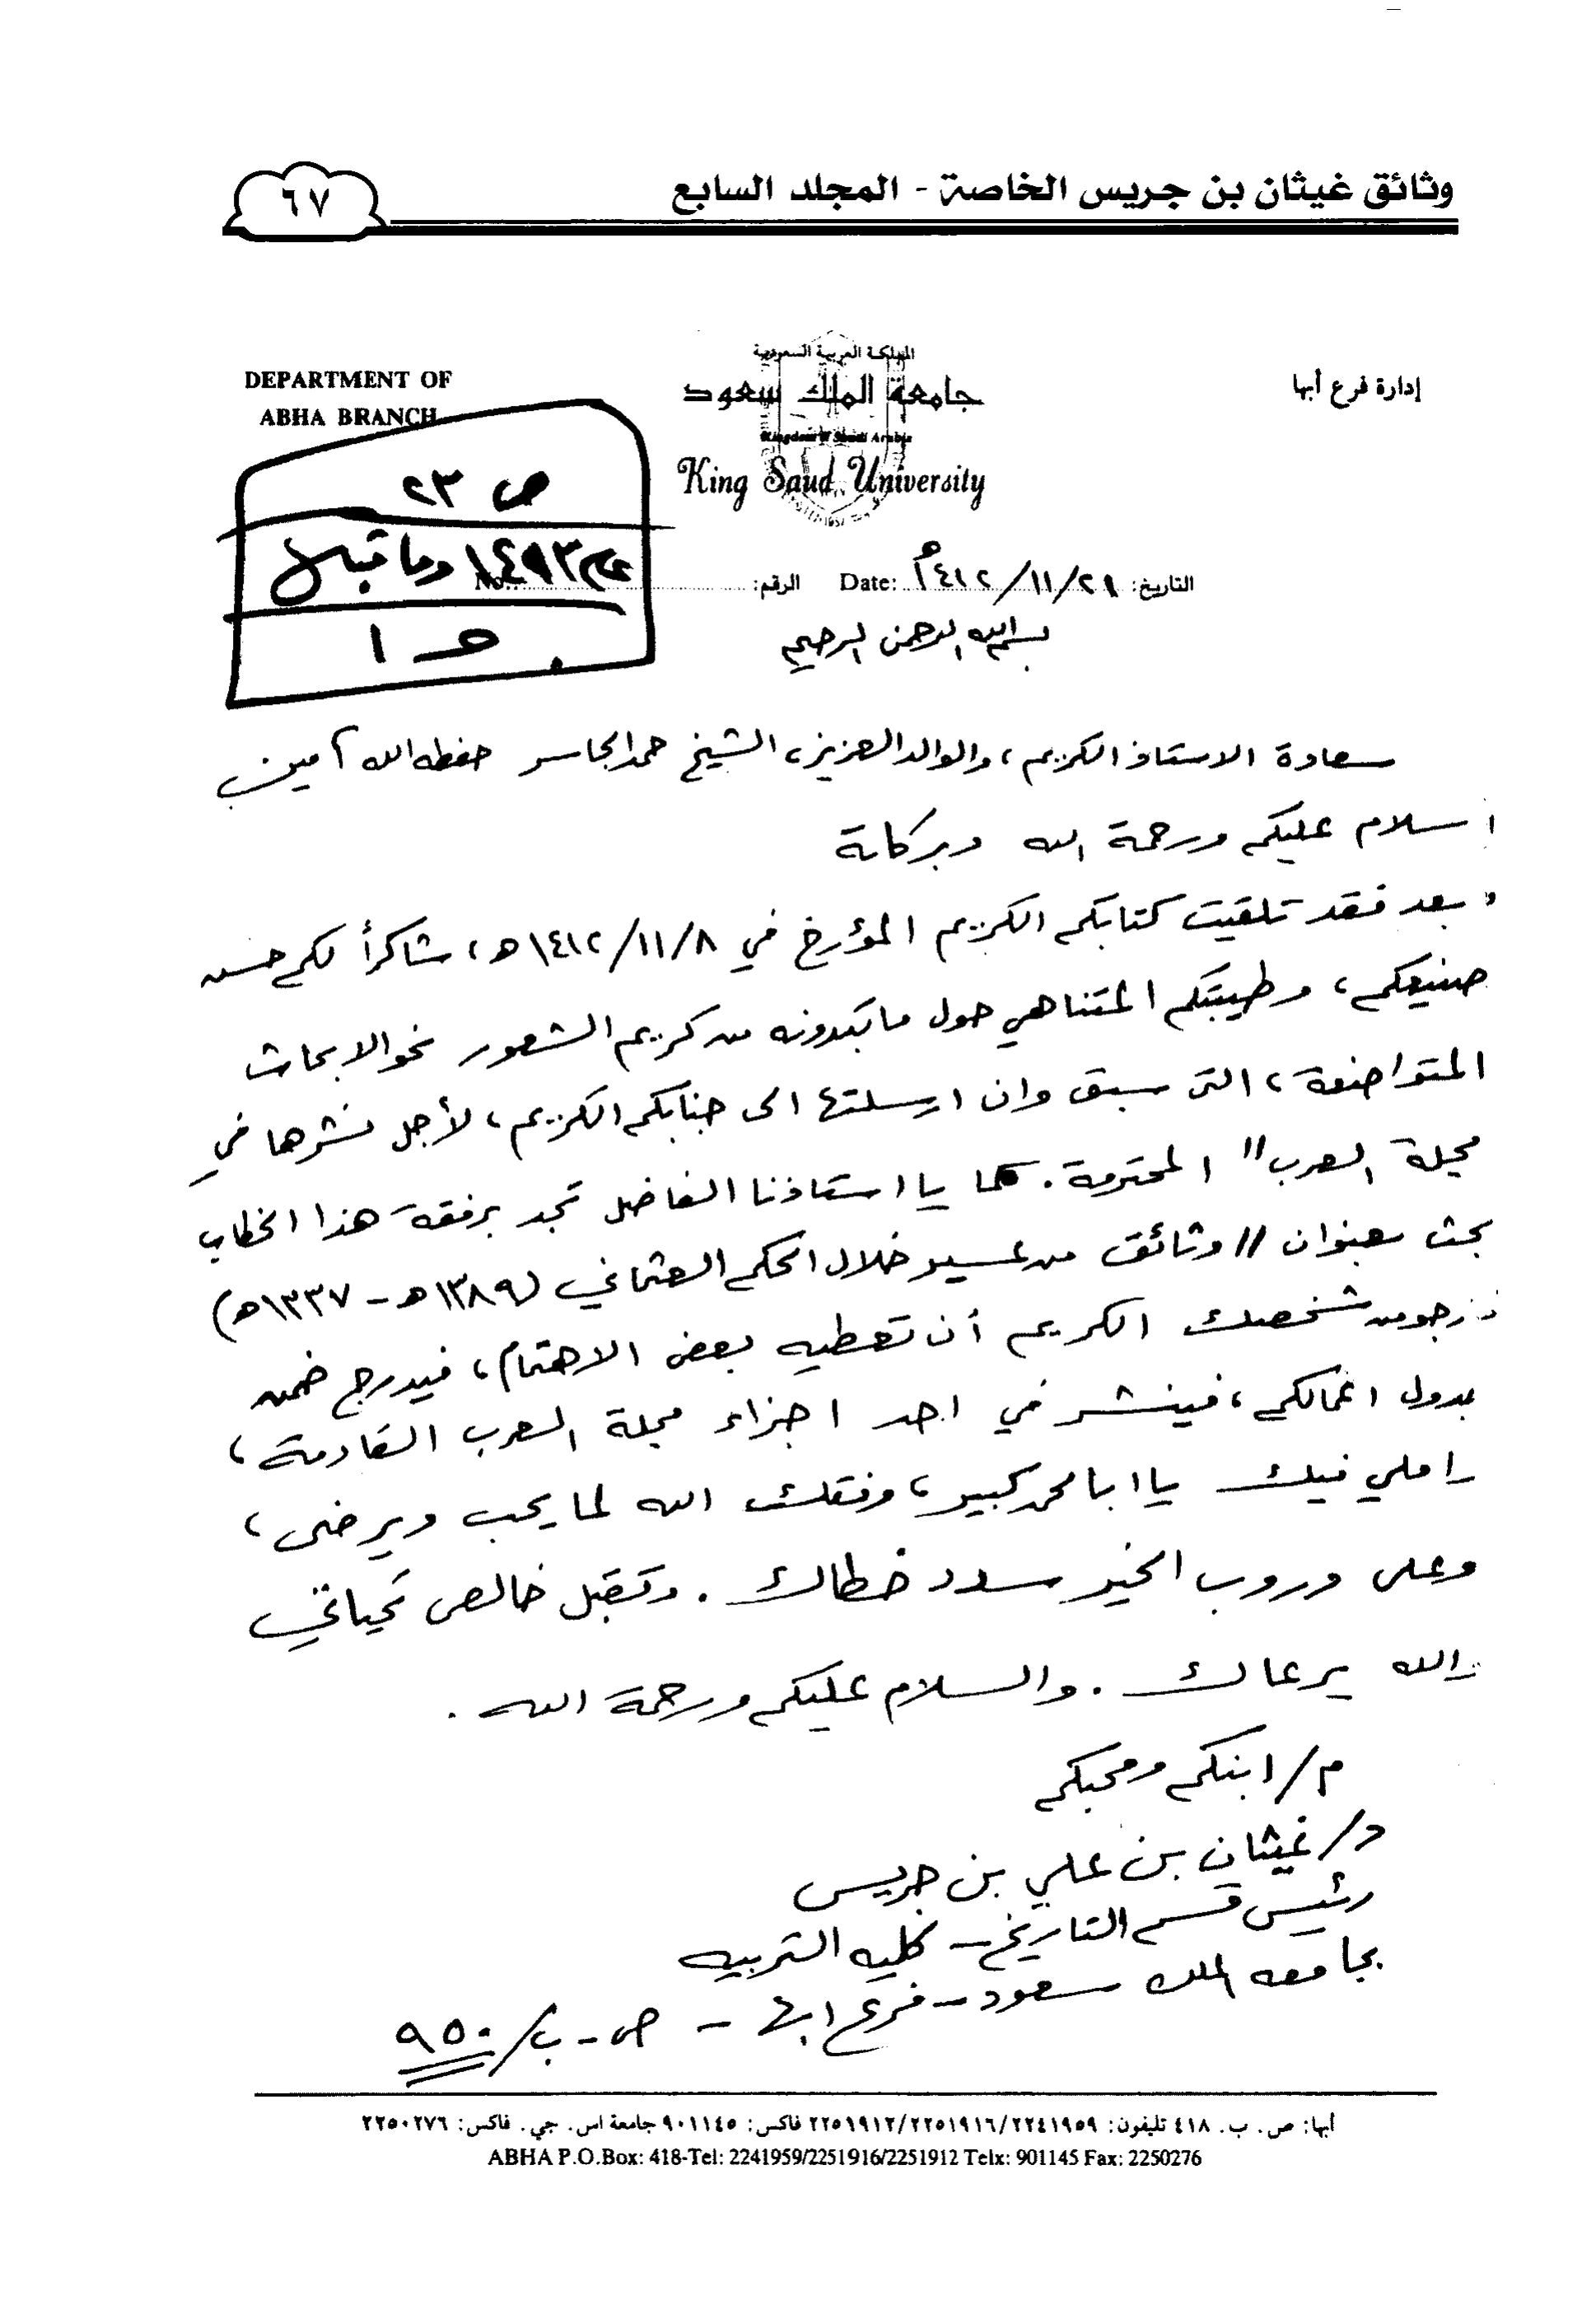 وثائق غيثان بن جريس الخاصة - المجلد السابع
٦٧
إدارة فرع أبها
المملكة العربية السعودية
جامعة الملك سعود
Kingdom of Saudi Arabia
King Saud University
DEPARTMENT OF
ABHA BRANCH
ص ٢٣
وما قبل
١
التاريخ: ١٤١٢/١١/٢١هـ Date: الرقم: No.
بسم الله الرحمن الرحيم
سعادة الاستاذ الكريم، والوالد العزيز، الشيخ حمد الجاسر حفظه الله آمين
السلام عليكم ورحمة الله وبركاته
وبعد فقد تلقيت كتابكم الكريم المؤرخ في ١٤١٢/١١/٨هـ، شاكراً لكم حسن
صنيعكم، وطيبتكم المتناهي حول ما تبدونه من كريم الشعور نحو الابحاث
المتواضعة، التي سبق وان ارسلتها الى جنابكم الكريم، لأجل نشرها في
مجلة العرب" المحترمة. كما يا استاذنا الفاضل تجد برفقة هذا الخطاب
بحث بعنوان // وثائق من عسير خلال الحكم العثماني (١٣٨٩هـ - ١٣٣٧هـ)
نرجو من شخصك الكريم أن تعطيه بعض الاهتمام، فيدرج ضمن
جدول اعمالكم، فينشر في احد اجزاء مجلة العرب القادمة،
واملي فيك يا ابا محمد كبير، وفقك الله لما يحب ويرضى،
وعلى دروب الخير سدد خطاك. وتقبل خالص تحياتي
والله يرعاك. والسلام عليكم ورحمة الله.
م/ ابنكم ومحبكم
د/ غيثان بن علي بن جريس
رئيس قسم التاريخ - كليه التربيه
بجامعه الملك سعود - فرع ابها - ص - ب/ ٩٥٠
أبها: ص. ب. ٤١٨ تليفون: ٢٢٤١٩٥٩/٢٢٥١٩١٦/٢٢٥١٩١٢ فاكس: ٩٠١١٤٥ جامعة اس. جي. فاكس: ٢٢٥٠٢٧٦
ABHA P.O.Box: 418-Tel: 2241959/2251916/2251912 Telx: 901145 Fax: 2250276